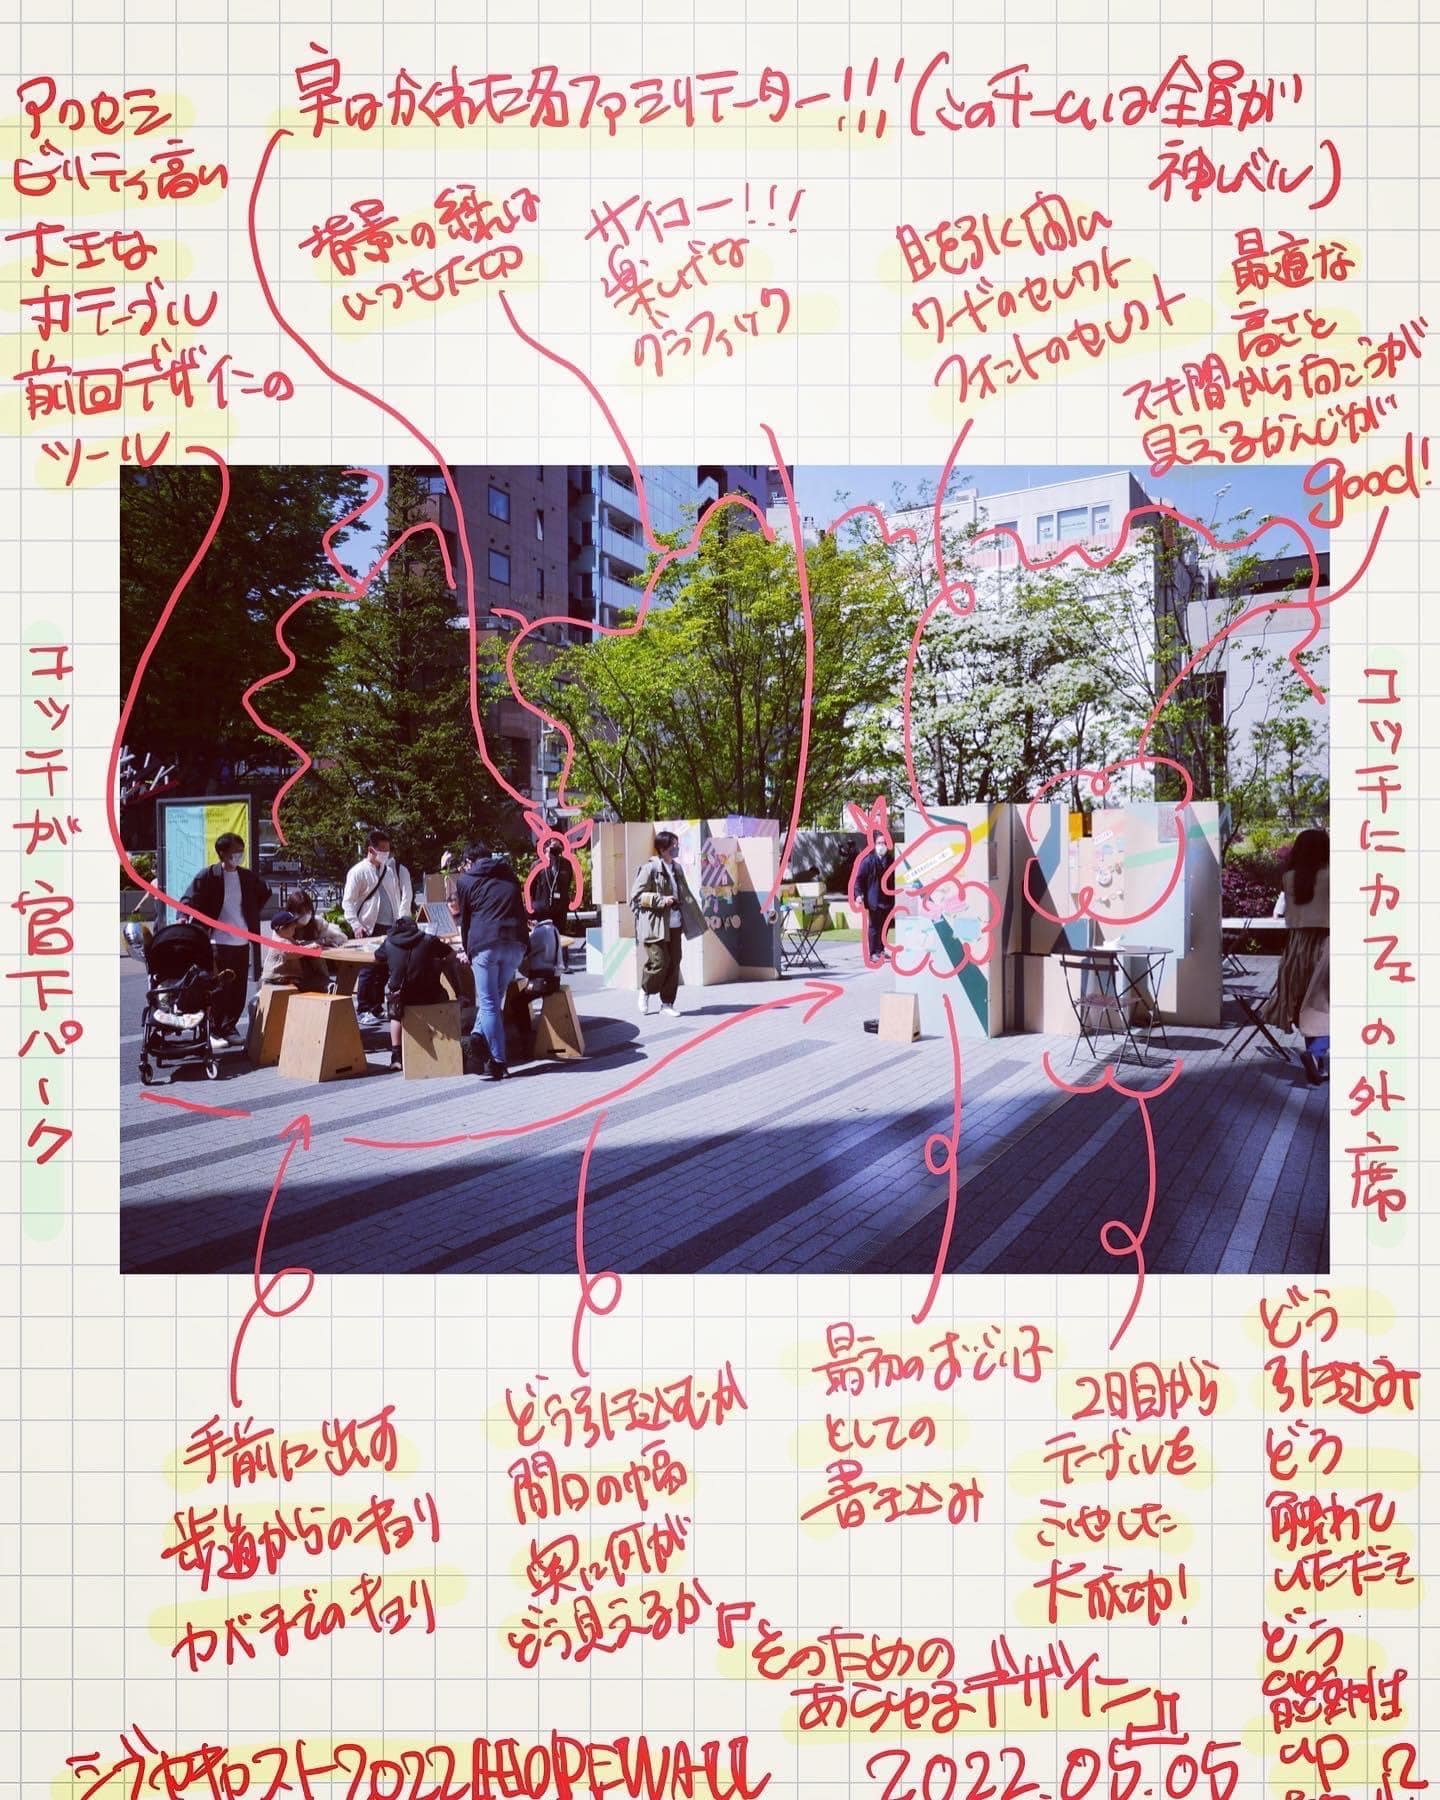 実はかくれた名ファシリテーター!!!(このチームは全員が
神レベル)
アクセシ
ビリティ高い
大王な
丸テーブル
前回デザインの
ツール
背景の緑は
いつも大切
サイコー!!!
楽しげな
グラフィック
目を引く問い
ワードのセレクト
フォントのセレクト
最適な
高さと
スキ間から向こうが
見えるかんじが
good!
コッチが宮下パーク
コッチにカフェの外席
手前に出す
歩道からのキョリ
カベまでのキョリ
どう引き込むか
間口の幅
奥に何が
どう見えるか
最初のお
としての
書き込み
2日目から
テーブルを
こやした
大成功!
どう
引き込み
どう
触れて
いただき
どう
up
『そのための
あらゆるデザイン』
シブヤキャスト2022 HOPEWALL
2022.05.05